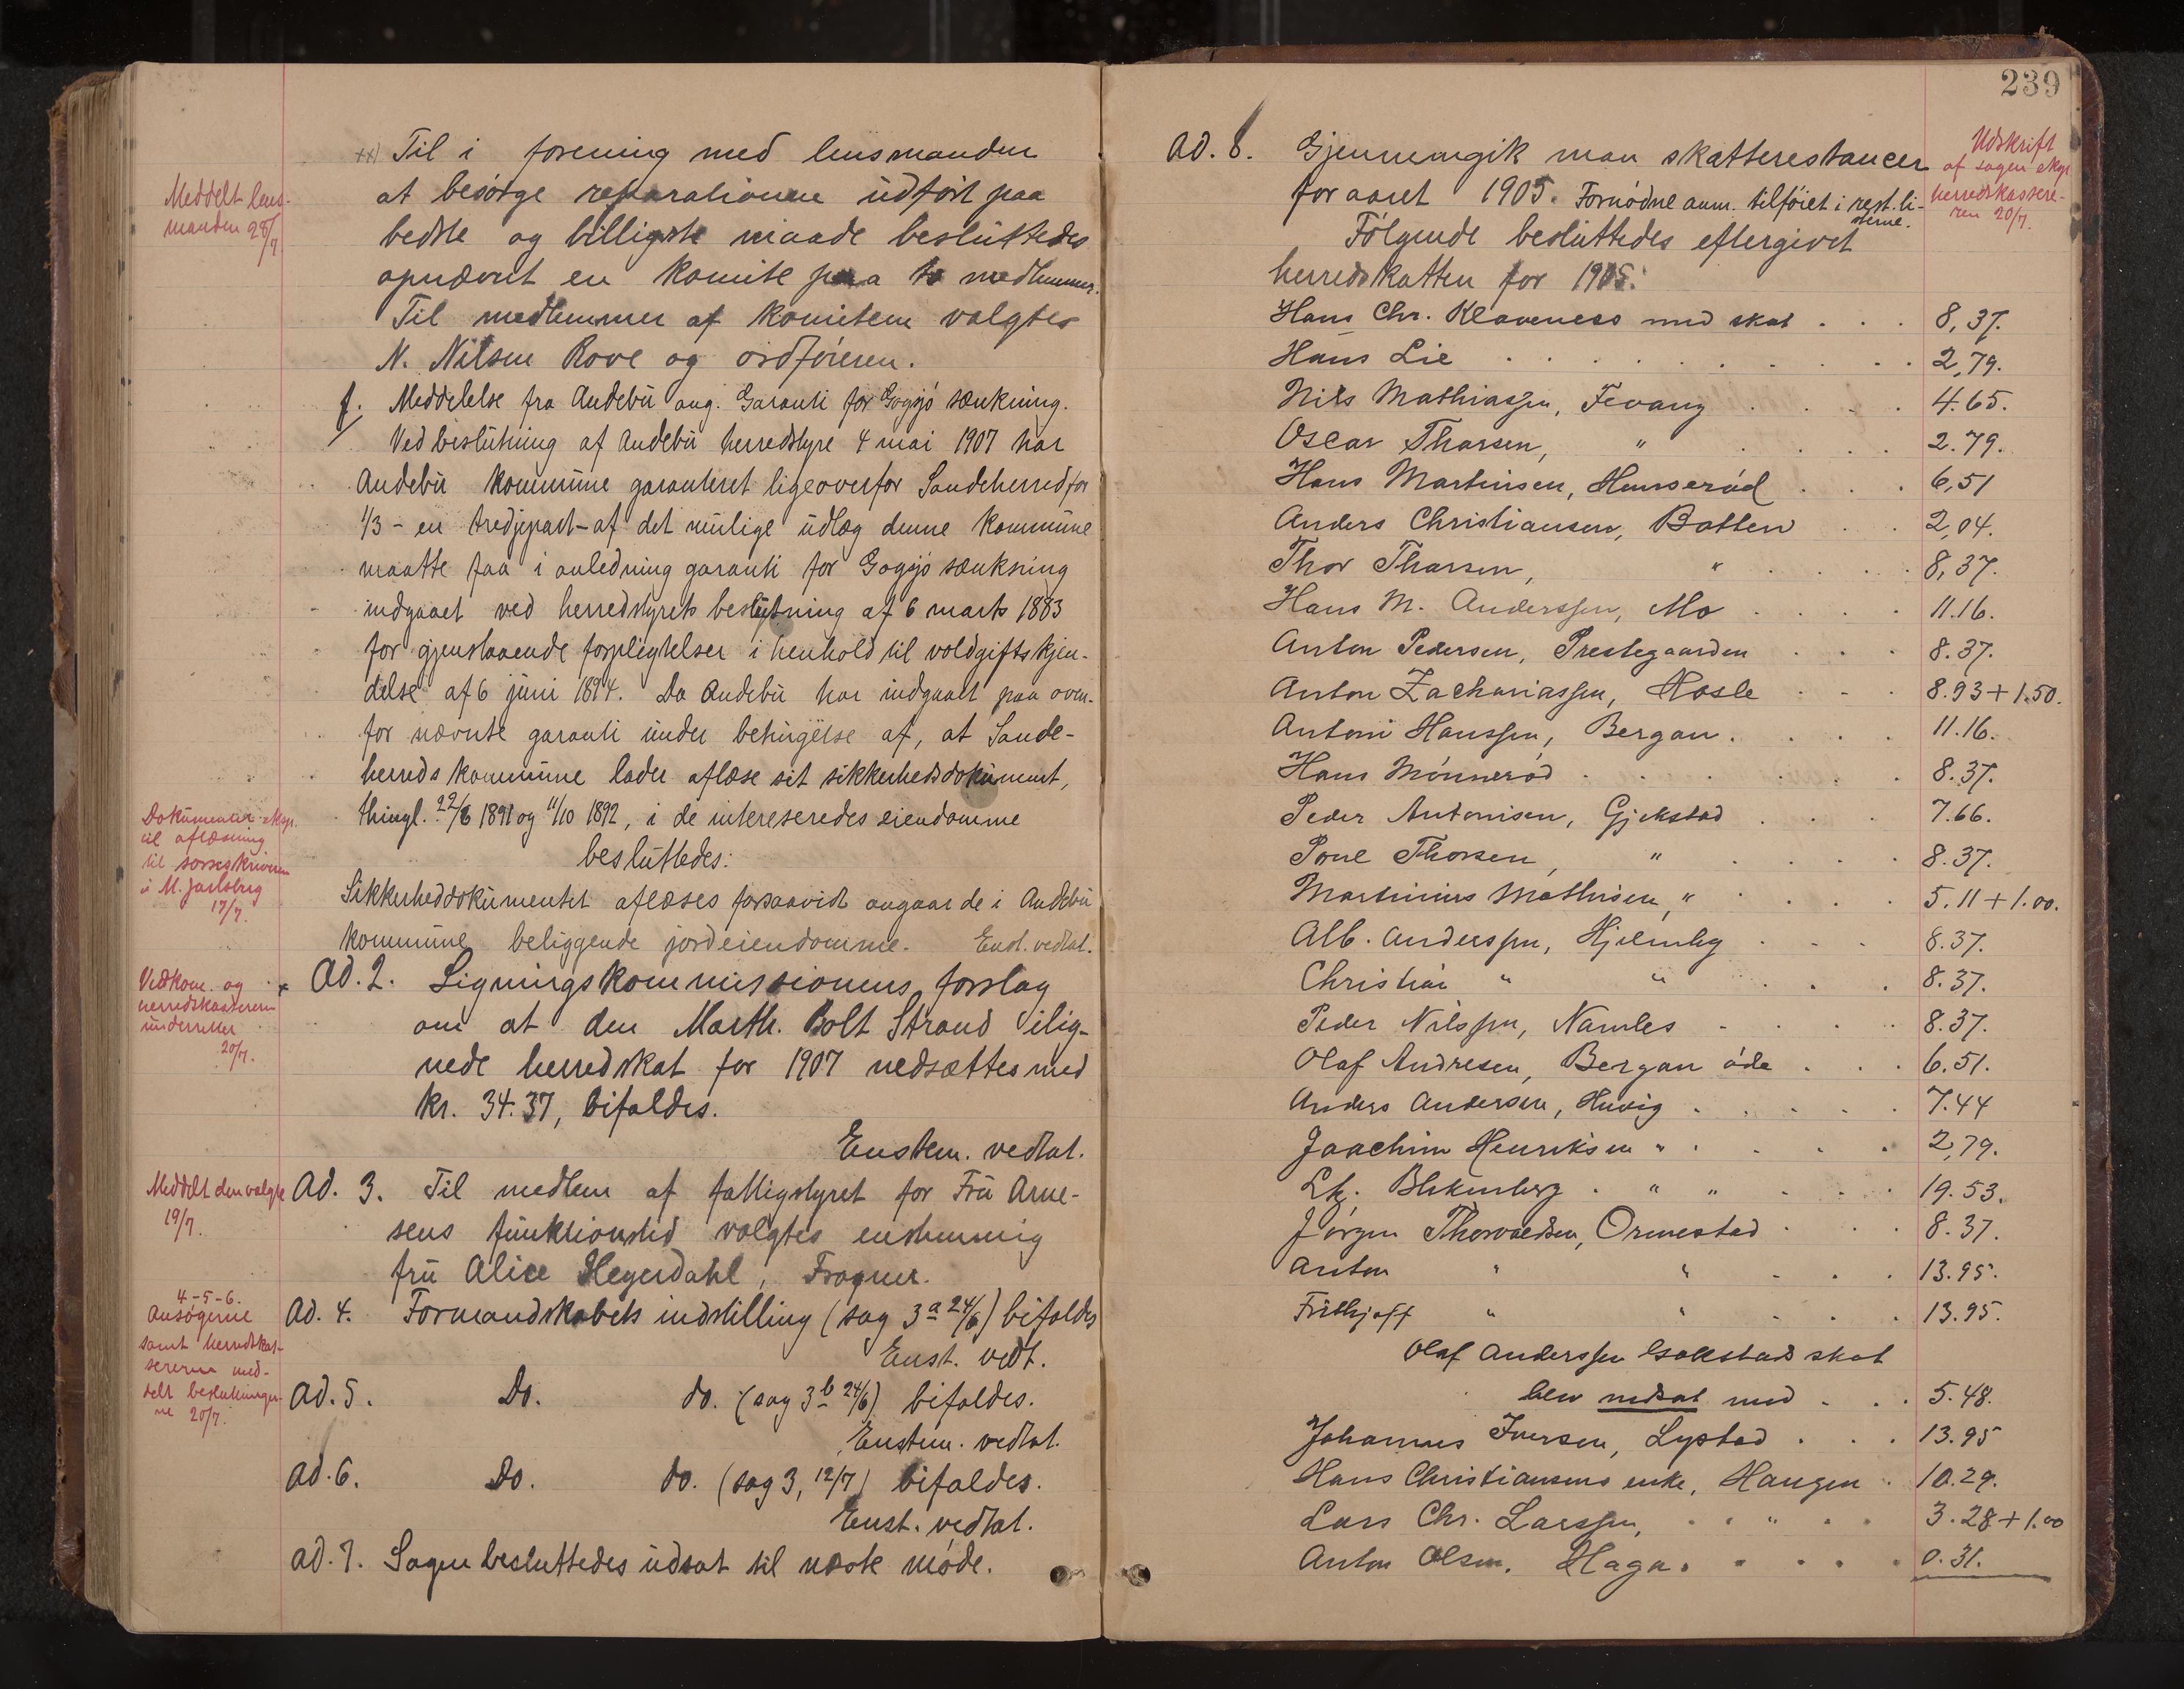 xx) Til i forening med lensmanden
at besørge reparationene udført paa
bedste og billigste maade besluttedes
opnævnt en komite paa to medlemmer.
Til medlemmer af komiteen valgtes
N. Nilsen Rove og ordføreren.
Meddelt lens-
manden 29/7
f. Meddelelse fra Andebu ang. Garanti for Gogsjø sænkning.
Ved beslutning af Andebu herredstyre 4 mai 1907 har
Andebu kommune garanteret ligeoverfor Sandeherred for
1/3 - en tredjepart - af det mulige udlæg denne kommune
maatte faa i anledning garanti for Gogsjø sænkning
indgaaet ved herredstyrets beslutning af 6 marts 1883
for gjenstaaende forpligtelser i henhold til voldgiftskjen-
delse af 6 juni 1894. Da Andebu har indgaaet paa oven-
for nævnte garanti under betingelse af, at Sande-
herreds kommune lader aflæse sit sikkerhedsdokument,
thingl. 22/6 1891 og 11/10 1892, i de intereseredes eiendomme
besluttedes:
Sikkerheddokumentet aflæses forsaavidt angaar de i Andebu
kommune beliggende jordeiendomme. Enst. vedtat.
Dokumenter eksp.
til aflæsning
til sorenskriveren
i M. Jarlsberg
17/7.
Ad. 2. Ligningskommissionens forslag
om at den Marth. Bolt Strand ilig-
nede herredskat for 1907 nedsættes med
kr. 34.37, bifaldes.
Enstem. vedtat.
Vedkom. og
herredskasereren
underrettet
20/7.
Ad. 3. Til medlem af fattigstyret for Fru Arne-
sens funktionstid valgtes enstemmig
fru Alice Heyerdahl, Fragner.
Meddelt den valgte
19/7.
Ad. 4. Formandskabets indstilling (sag 3a 24/6) bifaldes
Enst. vedt.
Ad. 5. Do. do. (sag 3b 24/6) bifaldes.
Enstem. vedtat.
Ad. 6. Do. do. (sag 3, 12/7) bifaldes.
Enst. vedtat.
Ad. 7. Sagen besluttedes udsat til næste møde.
4-5-6.
Ansøgerne
samt herredskas-
sereren med-
delt beslutninger-
ne 20/7.
239
Ad. 8. Gjennemgik man skatterestancer
for aaret 1905. Fornødne anm. tilføiet i rest.li-
sterne.
Følgende besluttedes eftergivet
herredskatten for 1905:
Udskrift
af sagen eksp.
herredskassere-
ren 20/7.
Hans Chr. Klaveness med skat . . . 8,37.
Hans Lie . . . 2,79.
Nils Mathiassen, Fevang . . . 4.65.
Oscar Tharsen, " . . . 2.79.
Hans Martinsen, Hunserød . . . 6,51
Anders Christiansen, Botten . . 2,04.
Thor Tharsen, " . . . 8,37.
Hans M. Anderssen, Mo . . . 11.16.
Anton Pedersen, Prestegaarden . . . 8.37.
Anton Zachariassen, Hasle . . . 8.93 + 1.50.
Antoni Hanssen, Bergan . . . 11.16.
Hans Mønnerød . . . 8.37.
Peder Antonisen, Gjekstad . . . 7.66.
Poul Thorsen, " . . . 8.37.
Martinius Mathisen, " . . . 5.11 + 1.00.
Alb. Anderssen, Hjelmby . . . 8.37.
Christian " " . . . 8.37.
Peder Nilssen, Namles . . . 8.37.
Olaf Andresen, Bergan øde . . . 6.51.
Anders Andersen, Huvig . . . 7.44
Joachim Henriksen " . . . 2,79.
Lk. Blekenberg . " " . . . 19.53.
Jørgen Thorvaldsen, Ormestad . . . 8.37.
Anton " " . . . 13.95.
Frithjoff " " . . . 13.95.
Olaf Anderssen Gokstads skat
blev nedsat med . . . 5.48.
Johannes Iversen, Lystad . . . 13.95
Hans Christiansens enke, Haugen . 10.29.
Lars Chr. Larssen, " . . 3.28 + 1.00
Anton Olsen, Haga . . . 0.31.